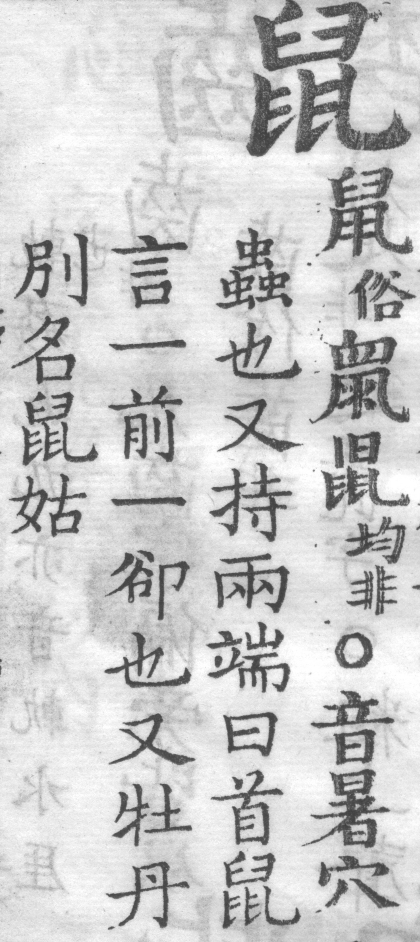 鼠
鼠俗鼠鼠均非○音暑穴
蟲也又持兩端曰首鼠
言一前一卻也又牡丹
別名鼠姑